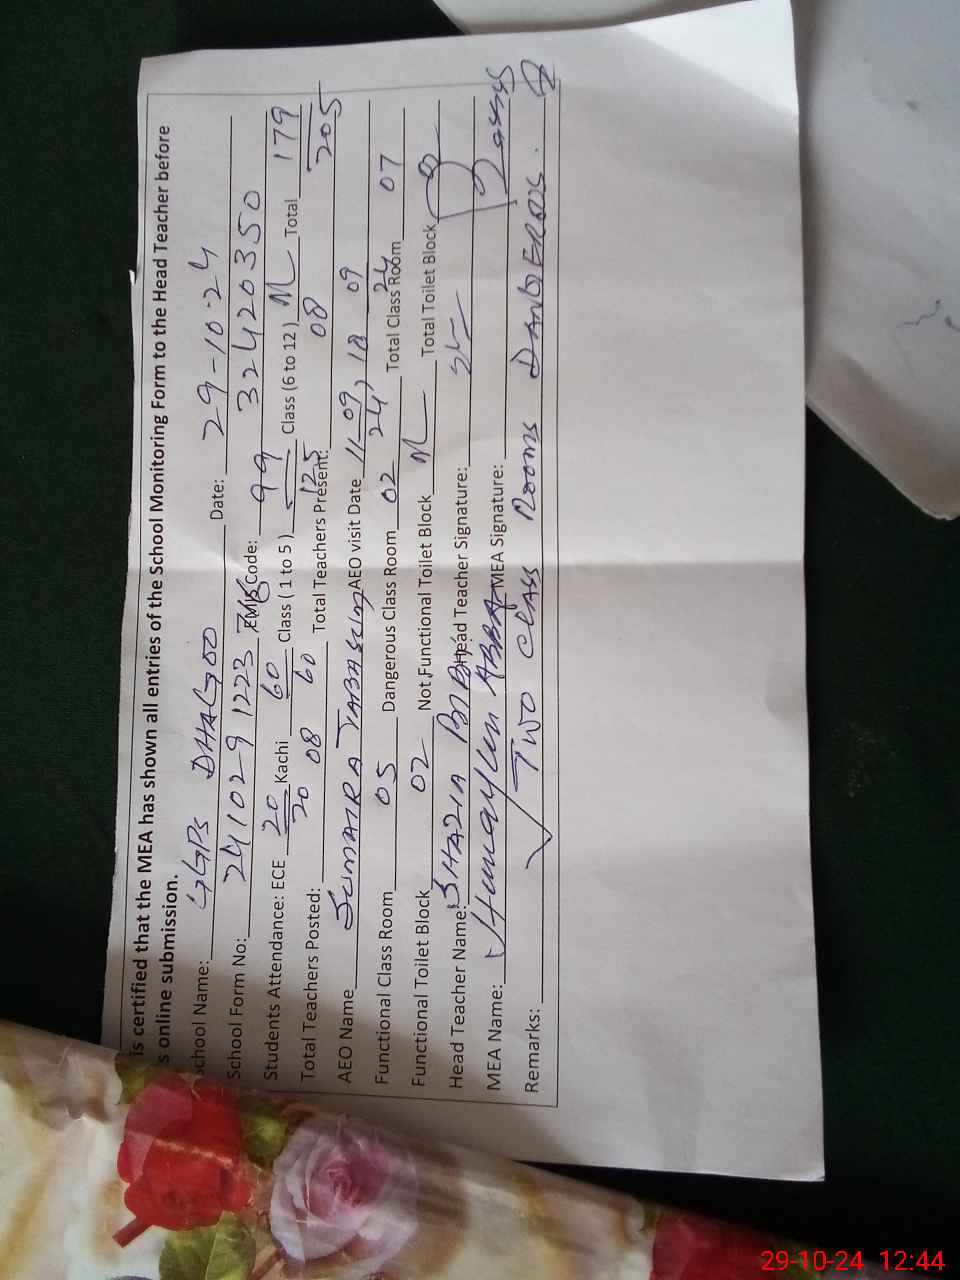 is certified that the MEA has shown all entries of the School Monitoring Form to the Head Teacher before
s online submission.
School Name: GGPS DHAGOO Date: 29-10-24
School Form No: 241029 1223 Code: 32420350
Students Attendance: ECE 20/20 Kachi 60/60 Class (1 to 5) 99/125 Class (6 to 12) Total 179/205
Total Teachers Posted: 08 Total Teachers Present: 08
AEO Name SUMAIRA TABASUM AEO visit Date 11 09 24, 18 09 24
Functional Class Room 05 Dangerous Class Room 02 Total Class Room 07
Functional Toilet Block 02 Not Functional Toilet Block Total Toilet Block 02
Head Teacher Name: SHAZIA BIBI Head Teacher Signature:
MEA Name: Humayun ABBAS MEA Signature:
Remarks: Two Class Rooms DANGEROUS.
29-10-24 12:44